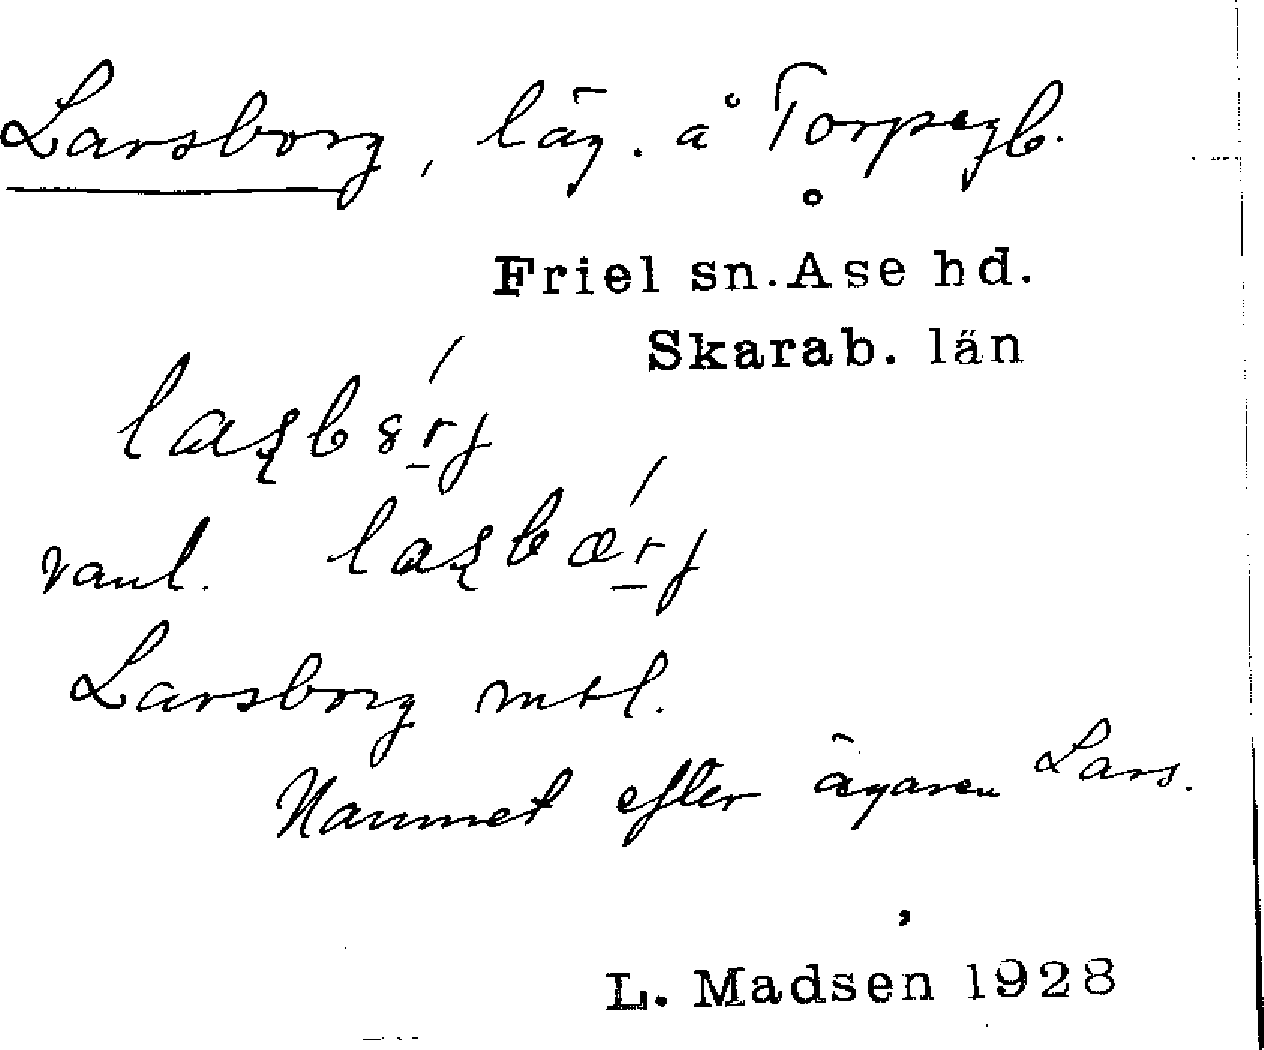 Larsborg, läg. å Torpegb.
Friel sn. Åse hd.
Skarab. län
vanl.
Larsborg mtl.
Namnet efter ägaren Lars.
L. Madsen 1928